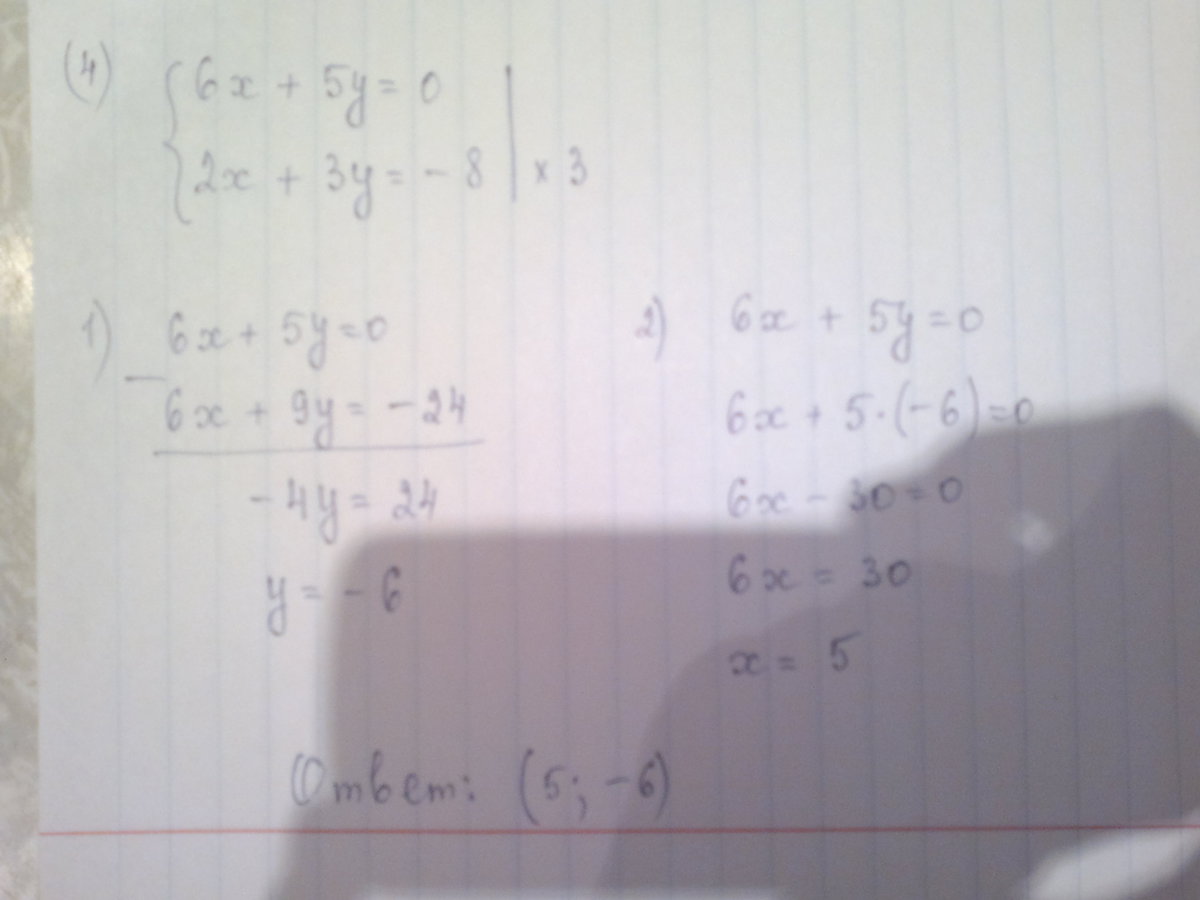 (4) { 6x + 5y = 0 |
2x + 3y = - 8 | x 3
1) 6x + 5y = 0
−
6x + 9y = - 24
- 4y = 24
y = - 6
2) 6x + 5y = 0
6x + 5·(-6) = 0
6x - 30 = 0
6x = 30
x = 5
Ответ: (5; -6)